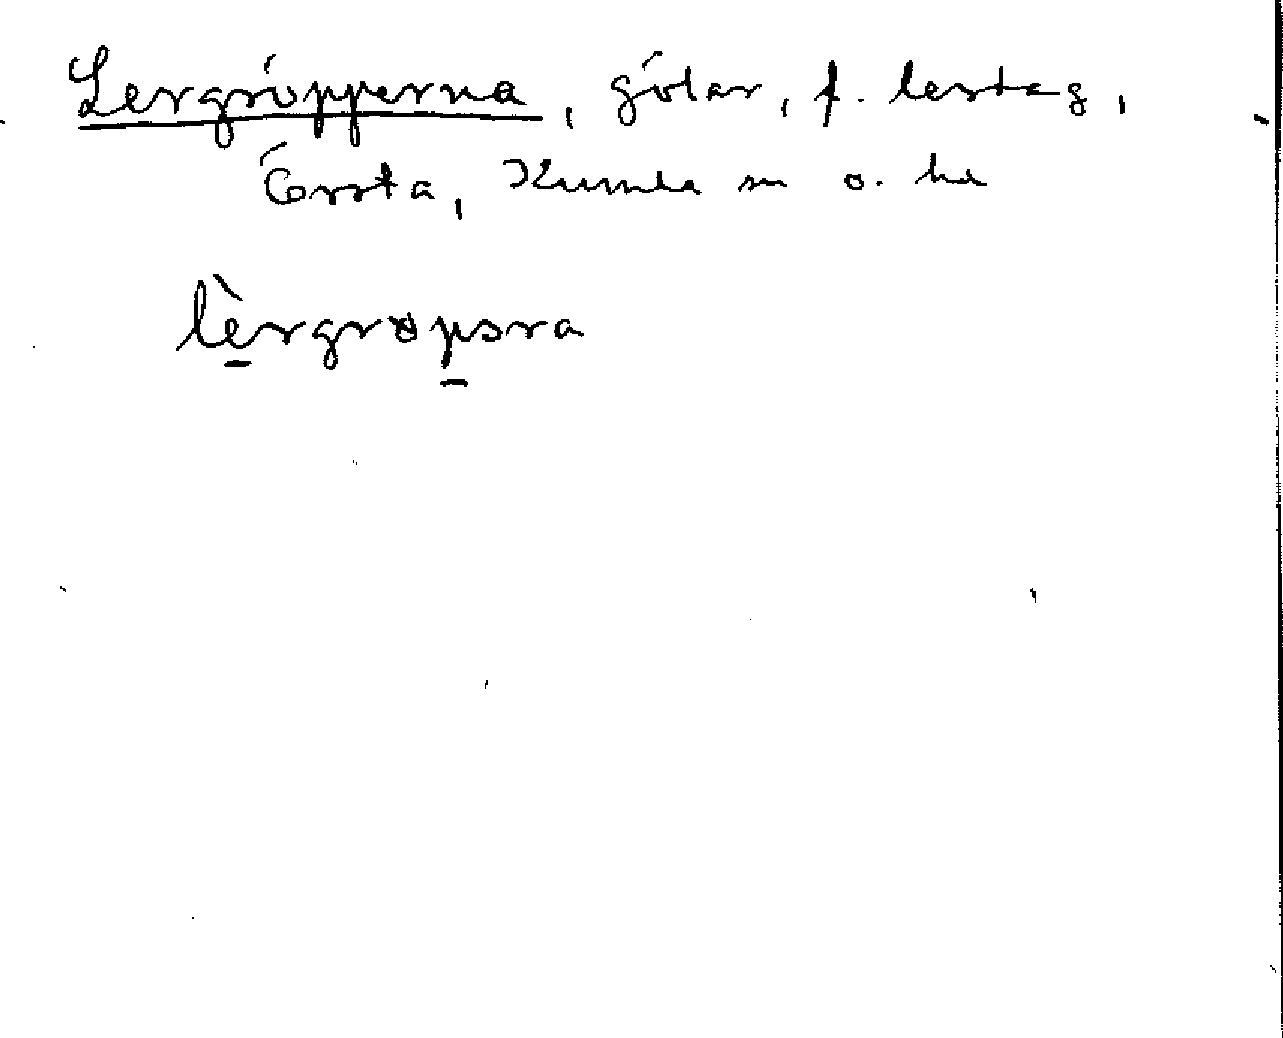 Lergröpperna, gölar, f. lertag,
Örsta, Kumla sn o. hd
lèrgrøpəra